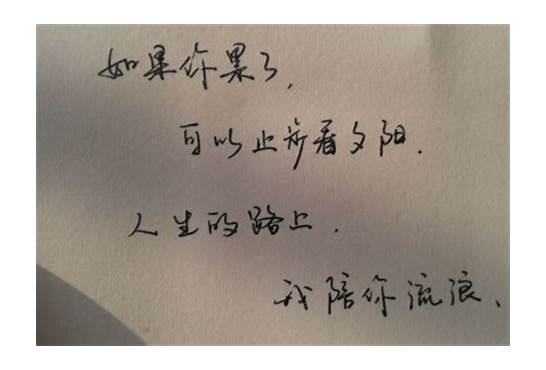 如果你累了,
可以止步看夕阳.
人生的路上,
我陪你流浪、